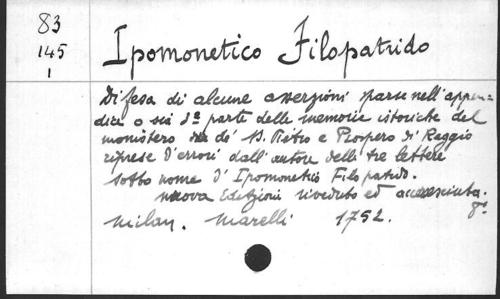 83
145
1
Ipomonetico Filopatrido
Difesa di alcune asserzioni sparse nell'appen-
dice o sei 3ª parte delle memorie istoriche del
monistero de' S. Pietro e Prospero di Reggio
riprese d'errori dall'autore delle tre lettere
sotto nome d'Ipomonetico Filopatrido.
nuova Edizioni riveduto ed accresciuta.
Milan. Marelli 1752. 8º